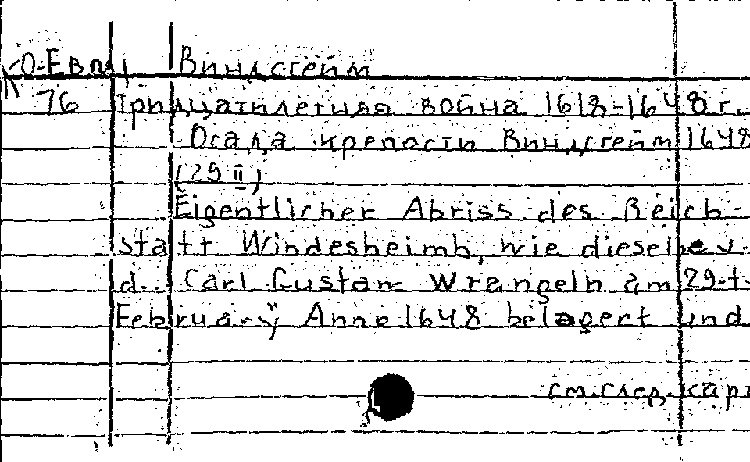 КО-Евпы Виндсгейм
76 Тридцатилетняя война 1618-1648 г.
Осада крепости Виндсгейм 1648
(29 II)
Eigentlicher Abriss des Reich-
statt Windesheimb, wie dieselbe v.
d. Carl Gustav Wrangeln am 29-t.
February Anno 1648 belagert und
см. след. кар